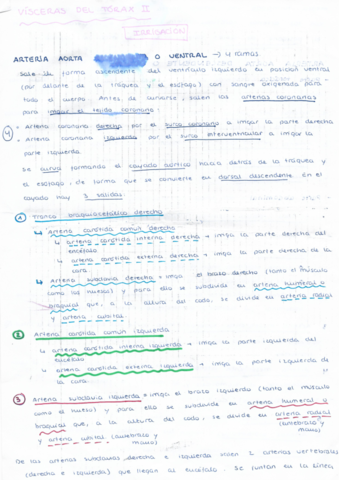 VÍSCERAS DEL TÓRAX II
IRRIGACIÓN
ARTERIA AORTA O VENTRAL → 4 ramas.
Sale de forma ascendente del ventrículo izquierdo en posición ventral
(por delante de la tráquea y el esófago) con sangre oxigenada para
todo el cuerpo. Antes de curvarse, salen las arterias coronarias
para irrigar el tejido coronario.
- Arteria coronaria derecha por el surco coronario a irrigar la parte derecha
- Arteria coronaria izquierda por el surco interventricular a irrigar la
parte izquierda.
Se curva formando el cayado aórtico hacia detrás de la tráquea y
el esófago, de forma que se convierte en dorsal descendente. En el
cayado hay 3 salidas:
① Tronco braquiocefálico derecho
↳ Arteria carótida común derecha
↳ arteria carótida interna derecha → irriga la parte derecha del
encéfalo
↳ arteria carótida externa derecha → irriga la parte derecha de la
cara.
↳ Arteria subclavia derecha → irriga el brazo derecho (tanto el músculo
como los huesos) y para ello se subdivide en arteria humeral o
braquial que, a la altura del codo, se divide en arteria radial
y arteria ulnar.
② Arteria carótida común izquierda
↳ arteria carótida interna izquierda → irriga la parte izquierda del
encéfalo
↳ arteria carótida externa izquierda → irriga la parte izquierda de
la cara.
③ Arteria subclavia izquierda → irriga el brazo izquierdo (tanto el músculo
como el hueso) y para ello se subdivide en arteria humeral y
braquial que, a la altura del codo, se divide en arteria radial
y arteria ulnar. (antebrazo y (antebrazo y
mano) mano)
De las arterias subclavias derecha e izquierda salen 2 arterias vertebrales
(derecha e izquierda) que llegan al encéfalo. Se juntan en la línea